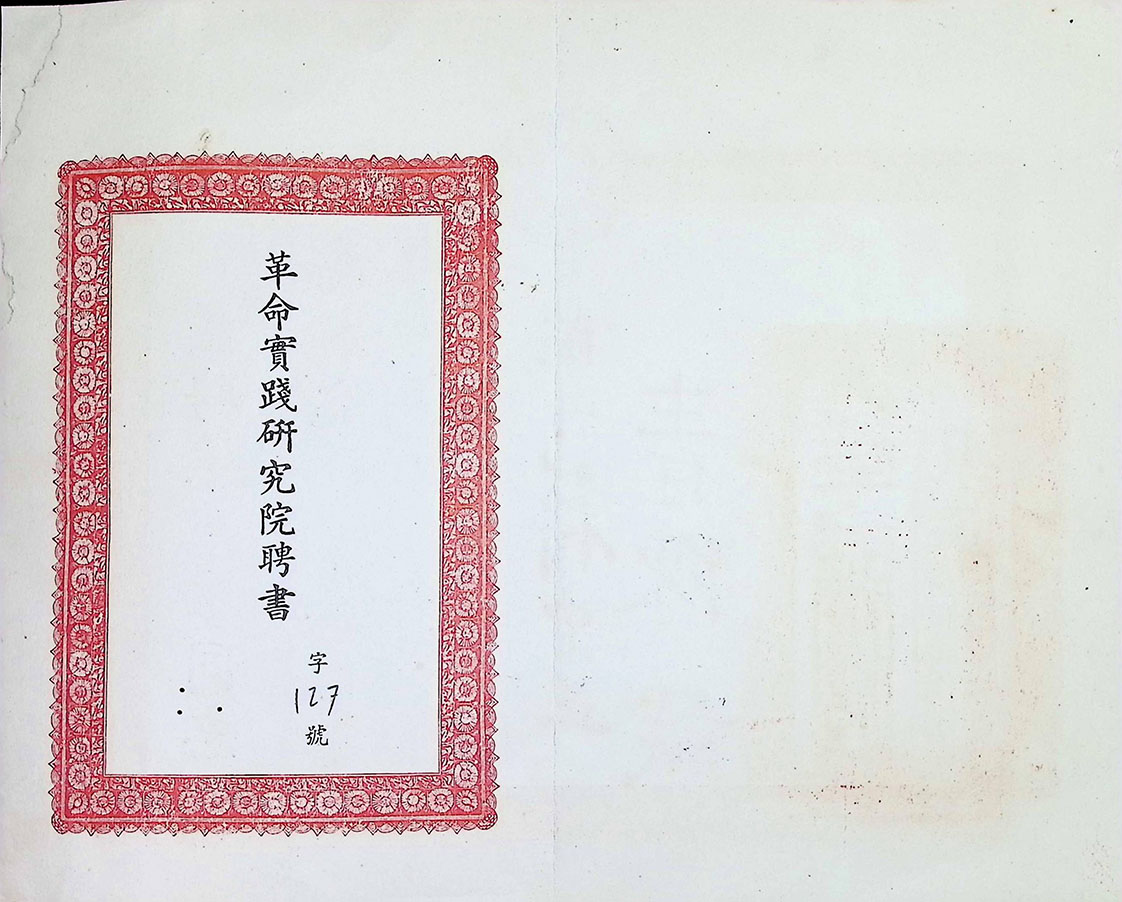 革命實踐硏究院聘書
字127號